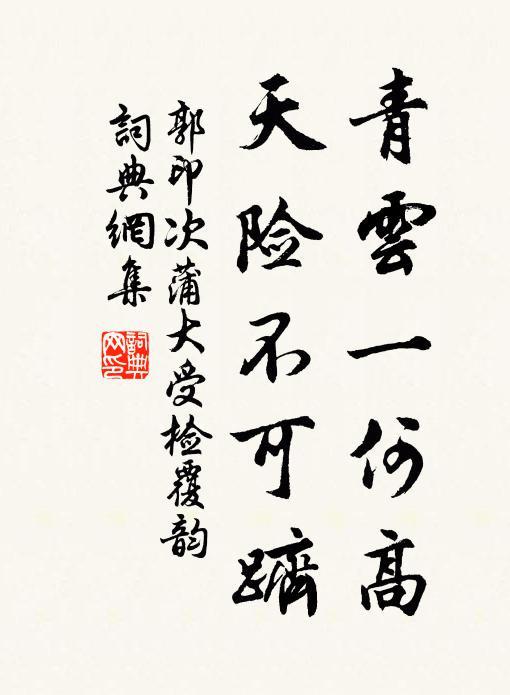 青雲一何高
天险不可躋
郭印次蒲大受检覆韵
詞典網集
詞典
网印